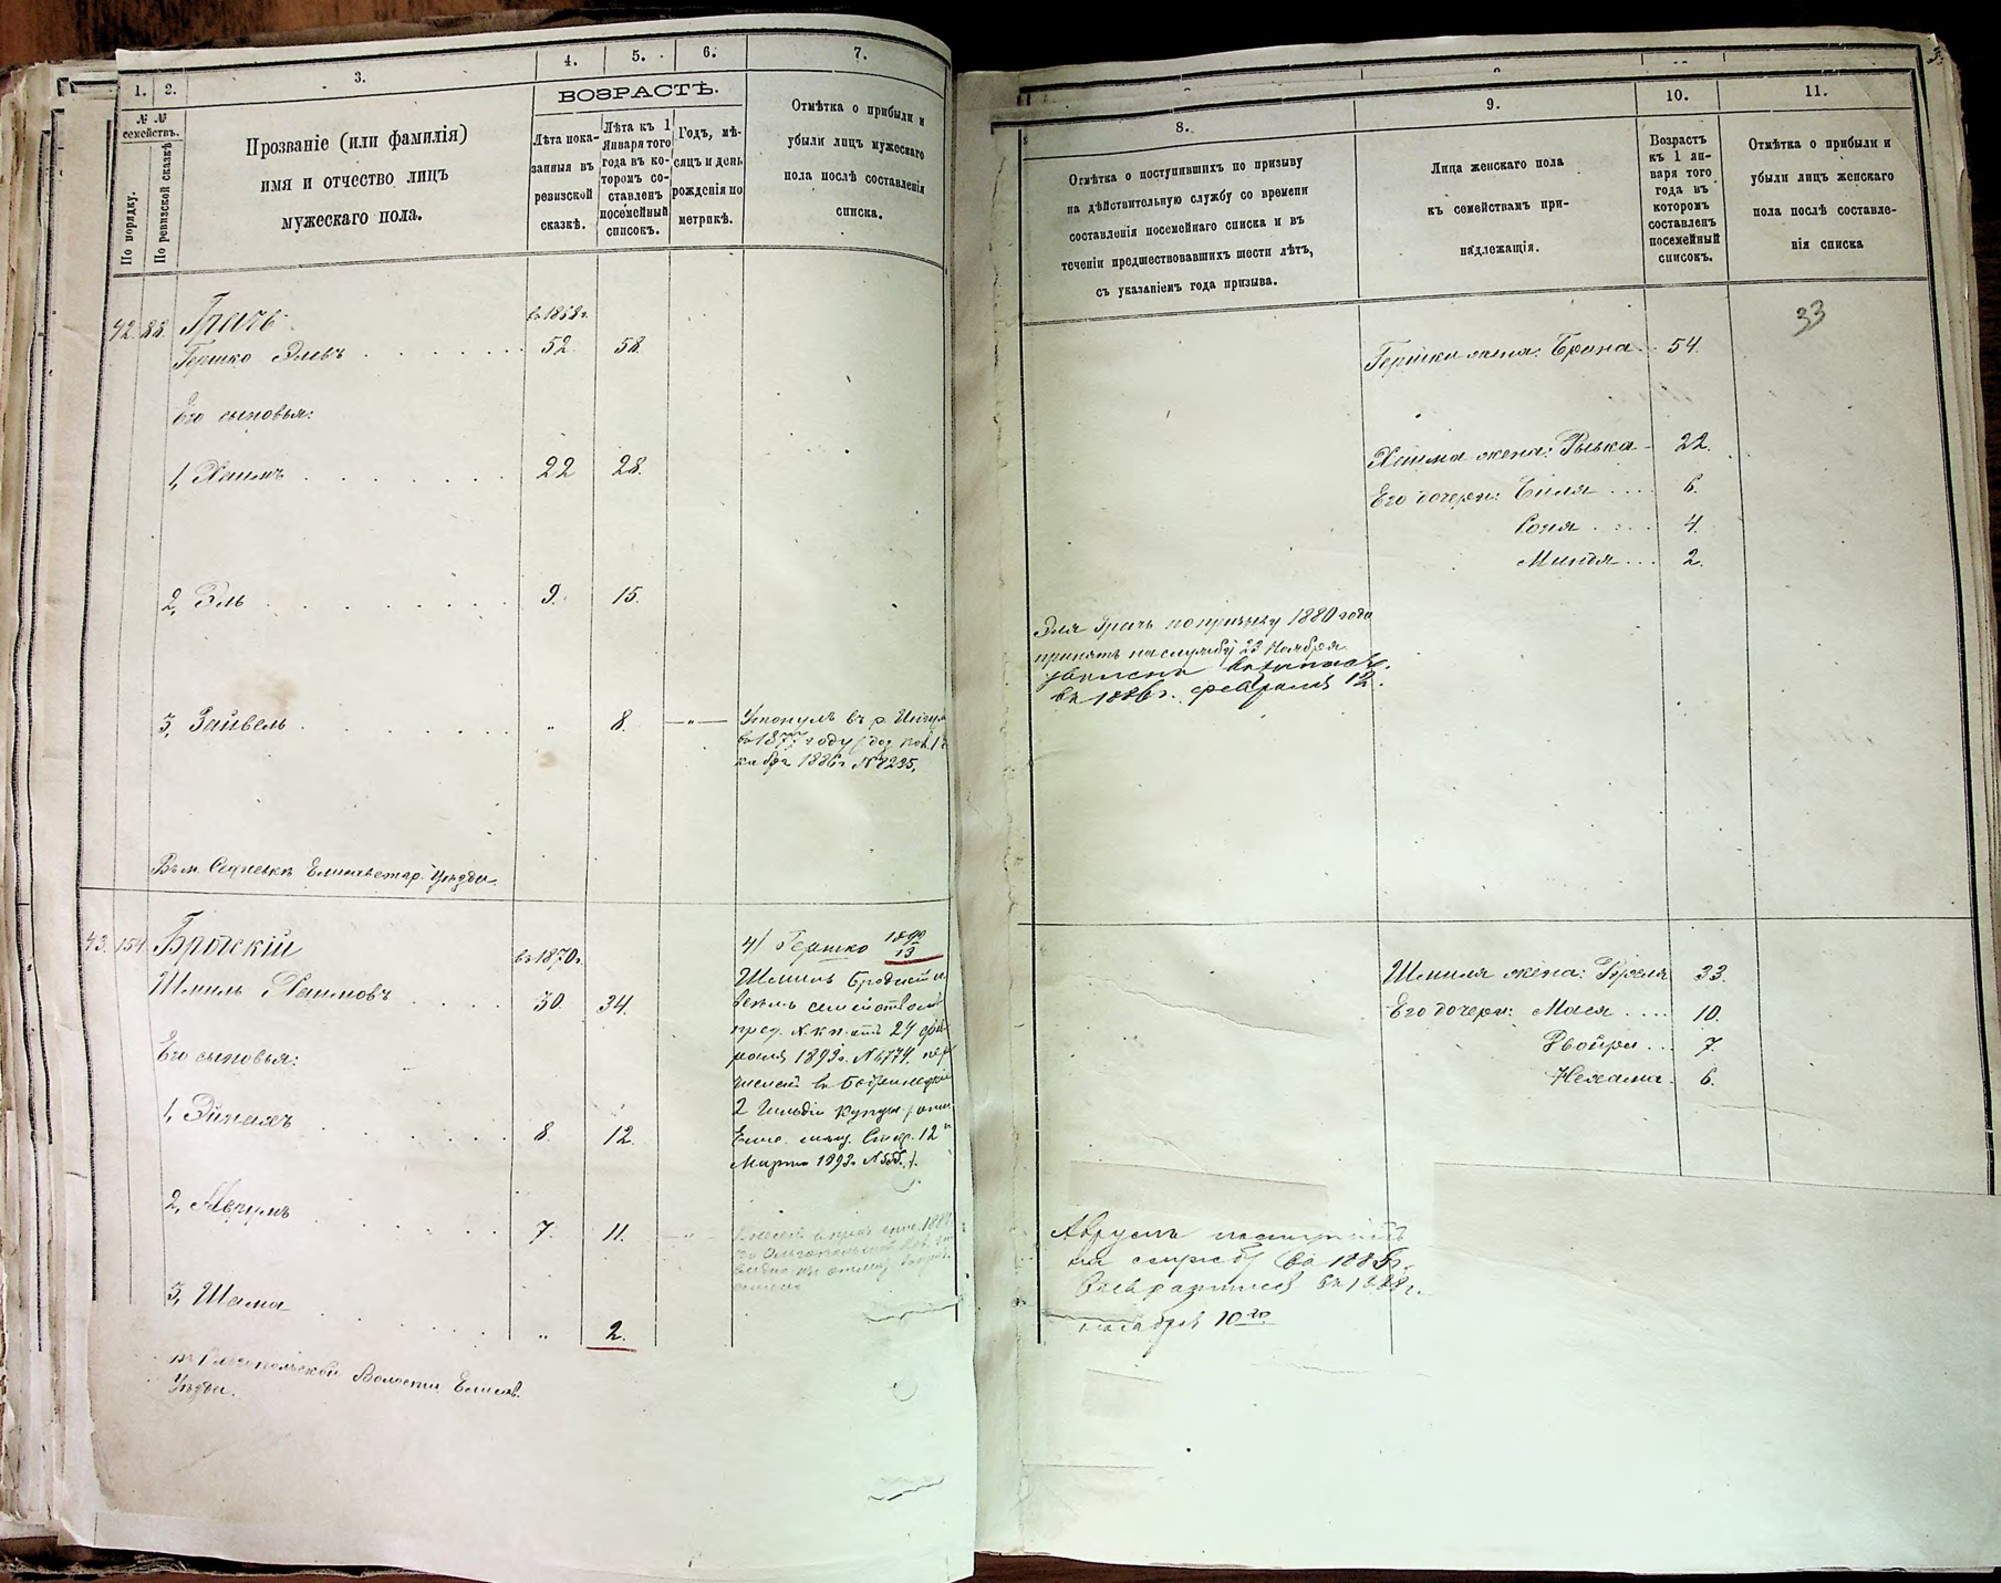 1. 2. 3. 4. 5. 6. 7.
№ №
семействъ.
По порядку.
По ревизской сказкѣ
Прозваніе (или фамилія)
имя и отчество лицъ
мужескаго пола.
ВОЗРАСТЪ.
Лѣта пока-
занныя въ
ревизской
сказкѣ.
Лѣта къ 1
Января того
года въ ко-
торомъ со-
ставленъ
посемейный
списокъ.
Годъ, мѣ-
сяцъ и день
рожденія по
метрикѣ.
Отмѣтка о прибыли и
убыли лицъ мужескаго
пола послѣ составленія
списка.
42. 88. Грачъ въ 1858 г.
Гершко Эльевъ 52. 58.
Его сыновья:
1, Хаимъ 22 28.
2, Эль 9. 15.
3, Зайвель „ 8. „ Утонулъ въ р. Ингулъ
въ 1877 году
1886 г. № 7235,
Въ м. Седневкѣ Елисаветгр. Уѣзда
43. 154 Бродскій въ 1870 г.
Шмиль Хаимовъ 30. 34.
Его сыновья:
1, Эйнахъ 8. 12.
2, Аврумъ 7. 11.
3, Шама „ 2.
Волости Елисав.
Уѣзда.
4) Гершко 1890/13
Шмиль Бродскій и
всѣмъ семействомъ
24 фев-
раля 1893 г. № 6774 пере
численъ въ Бобринецкіе
2 гильдіи купцы
12
Марта 1893 г.
8. 9. 10. 11.
Отмѣтка о поступившихъ по призыву
на дѣйствительную службу со времени
составленія посемейнаго списка и въ
теченіи предшествовавшихъ шести лѣтъ,
съ указаніемъ года призыва.
Лица женскаго пола
къ семействамъ при-
надлежащія.
Возрастъ
къ 1 ян-
варя того
года въ
которомъ
составленъ
посемейный
списокъ.
Отмѣтка о прибыли и
убыли лицъ женскаго
пола послѣ составле-
нія списка
33
Гершки жена: Брана 54.
Хаима жена: Рывка 22.
Его дочери: Биля 6.
Соня 4.
Миндя 2.
Эля Грачъ по призыву 1880 года
принятъ на службу 23 Ноября
въ 1886 г. февраля 12.
Шмиля жена: Крейля 33.
Его дочери: Мася 10.
Двойра 7.
Нехама 6.
Аврумъ поступилъ
на службу въ 1885 г.
Возвратился въ 1888 г.
ноября 10 го